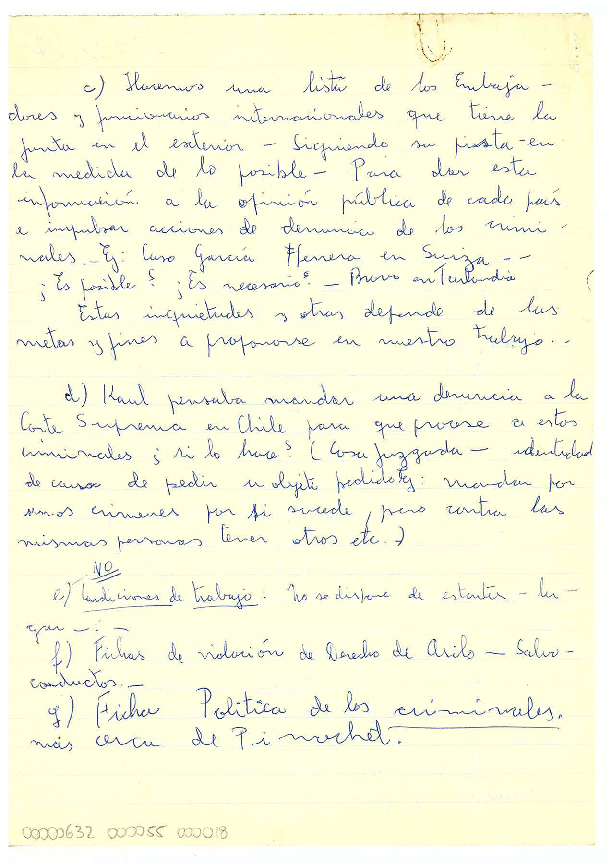 c) Hacemos una lista de los Embaja-
dores y funcionarios internacionales que tiene la
junta en el exterior - Siguiendo su pista - en
la medida de lo posible - Para dar esta
información a la opinión pública de cada país
e impulsar acciones de denuncia de los crimi-
nales. - Ej: Caso García Herrera en Suiza - -
¿Es posible? ¿Es necesario? - Bravo en
Estas inquietudes y otras depende de las
metas y fines a proponerse en nuestro trabajo. -
d) Kaul pensaba mandar una denuncia a la
Corte Suprema en Chile para que procese a estos
criminales ¿ si lo hace? (Cosa Juzgada - identidad
de causa de pedir u objeto pedido Ej: mandar por
unos crimenes por si sucede, pero contra las
mismas personas tener otros etc.)
NO
e) Condiciones de trabajo: No se dispone de estantes - lu-
gar - . -
f) Fichas de violación de Derecho de Asilo - Salvo-
conductos. -
g) Ficha Política de los criminales.
más cerca de Pinochet.
00000632 000055 000018